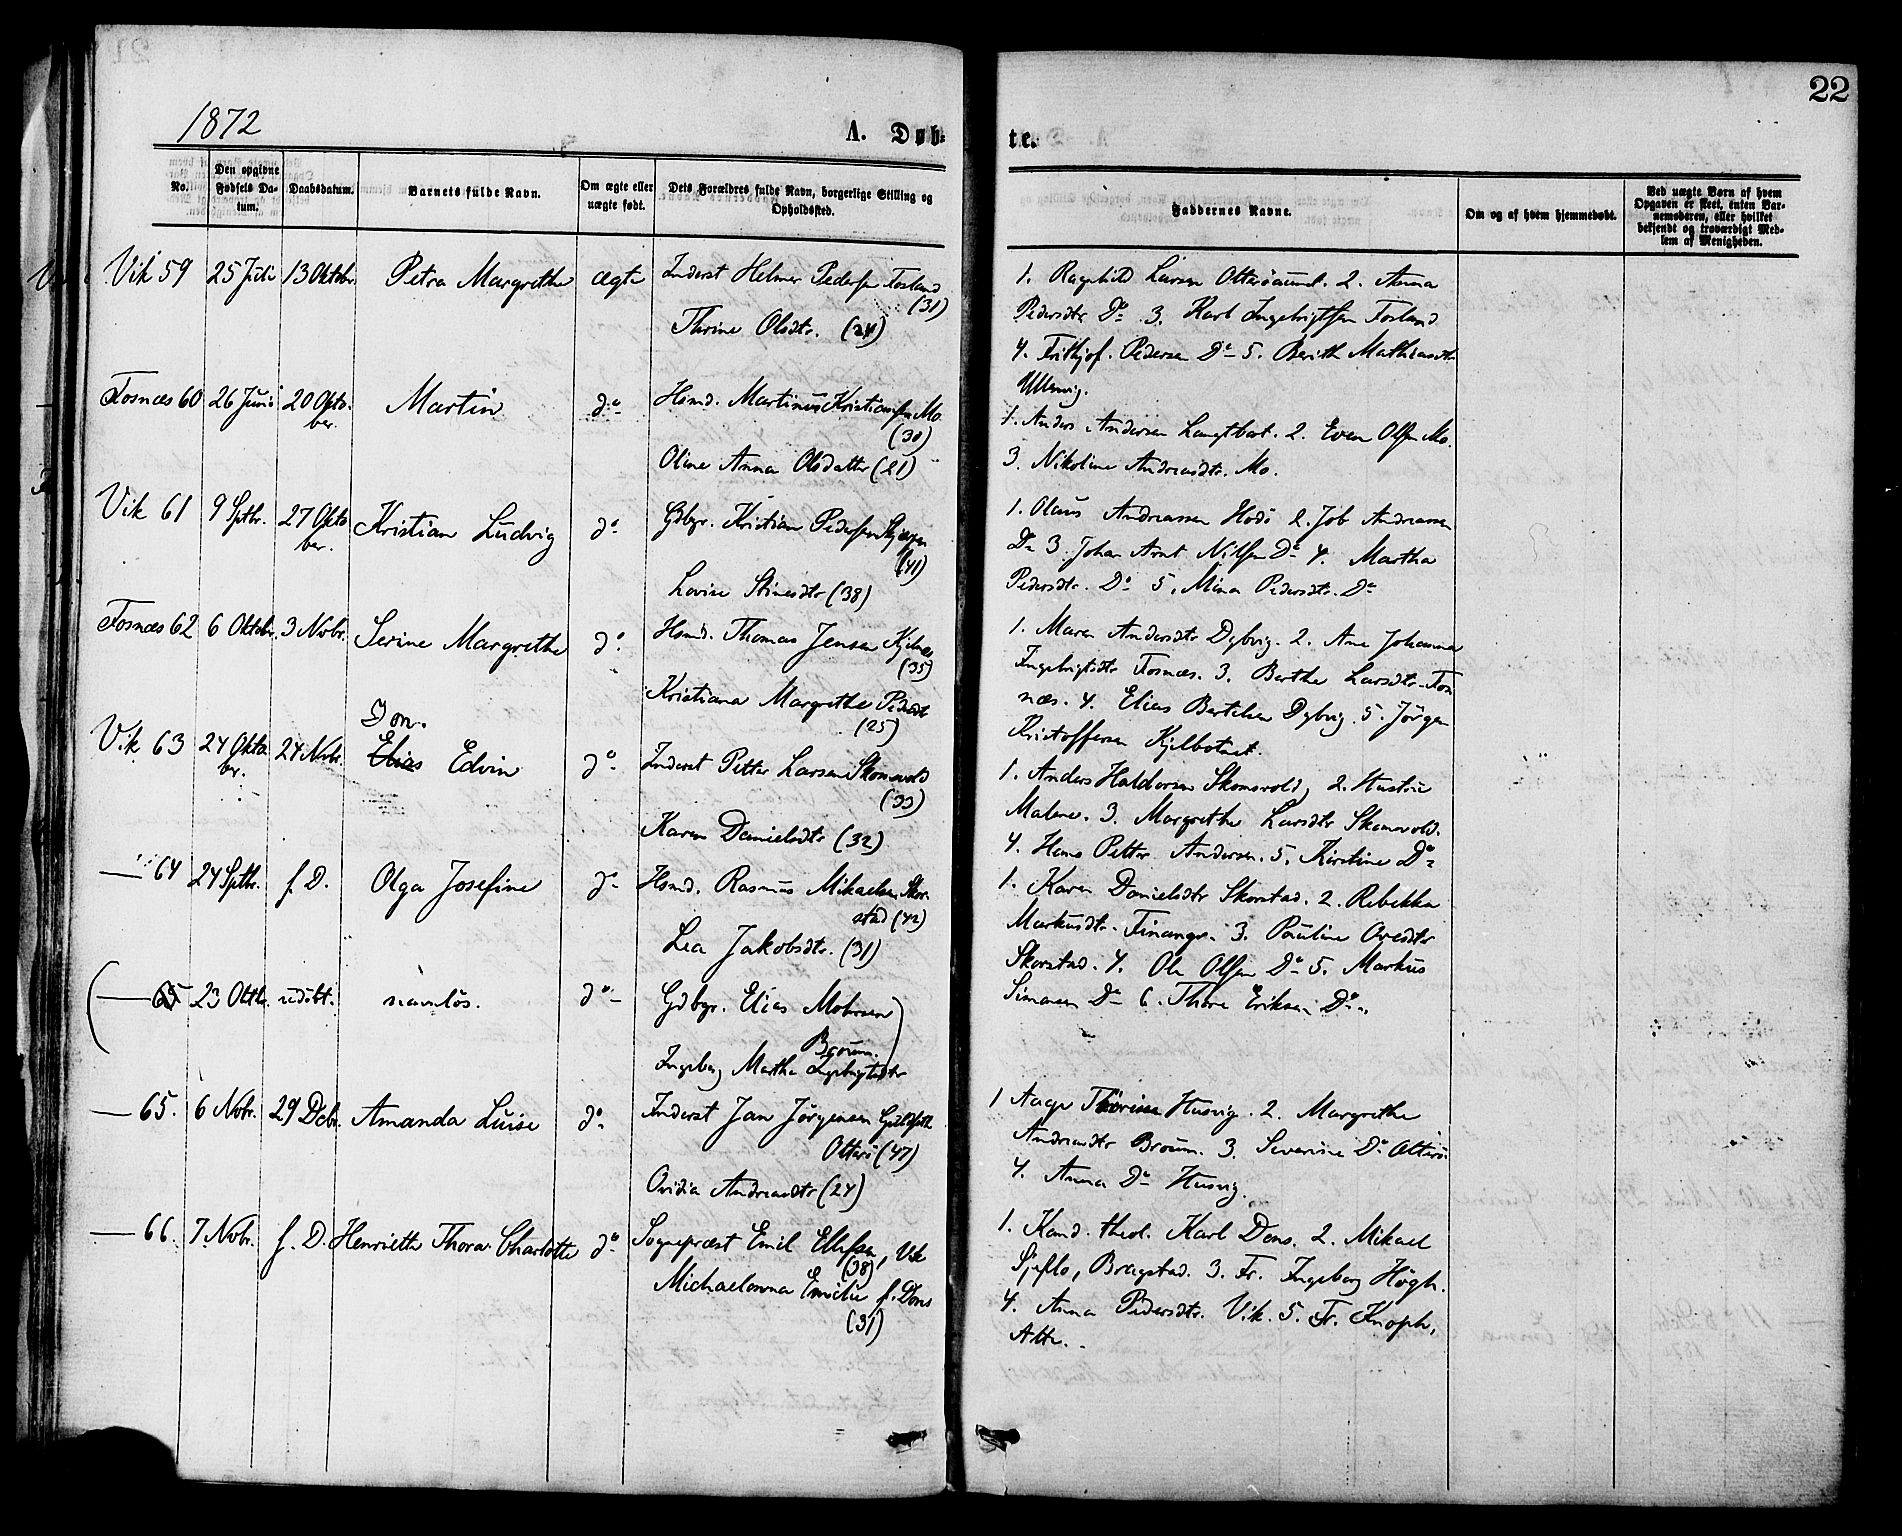 22
1872
A. Døb-
te.
No.
Den opgivne Fødsels Da-tum.
Daabsdatum.
Barnets fulde Navn.
Om ægte eller uægte født.
Dets Forældres fulde Navn, borgerlige Stilling og Opholdssted.
Faddernes Navne.
Om og af hvem hjemmedøbt.
Ved uægte Børn af hvem Opgaven er skeet, enten Bar-nemoderen, eller hvilket bekjendt og troværdigt Med-lem af Menigheden.
Vik 59 25 Juli 13 Oktobr. Petra Margrethe ægte Inderst Helmer Pedersen Fosland (31)
Thrine Olsdtr. (24)
1. Ragnhild Larsen Otterøaunet. 2. Anna
Pedersdtr Do 3. Karl Ingebrigtsen Fosland
4. Frithjof Pedersen Do 5. Berith Mathiasdtr
Ullervig.
Fosnæs 60 26 Juni 20 Okto-ber. Martin do Hsmd. Martinus Kristiansen Mo (30)
Oline Anna Olsdatter (21)
1. Anders Andersen Langtbort. 2. Even Olsen Mo.
3. Nikoline Andreasdtr. Mo.
Vik 61 9 Sptbr. 27 Okto-ber. Kristian Ludvig do Gdbgr. Kristian Pedersen (41)
Lovise Stinesdtr (38)
1. Olaus Andreassen Hodø 2. Job Andreassen
Do 3. Johan Arnt Nilsen Do 4. Martha
Pedersdtr. Do 5. Mina Pedersdtr. Do
Fosnæs 62 6 Oktobr. 3 Novbr. Serine Margrethe do Hsmd. Thomas Jensen (35)
Kristiana Margrethe Pedersdtr (25)
1. Maren Andersdtr Dybvig. 2. Ane Johanna
Ingebrigtsdtr Fosnæs. 3. Berthe Larsdtr. Fos-
næs. 4. Elias Bertelsen Dybvig. 5. Jørgen
Kristoffersen Kjelbotnet.
Jon.
Vik 63 24 Okto-br. 24 Novbr. Elias Edvin do Inderst Petter Larsen Skomsvold (33)
Karen Danielsdtr (32)
1. Anders Haldorsen Skomsvold, 2. Hustru
Malene. 3. Margrethe Larsdtr Skomsvold.
4. Hans Petter Andersen. 5. Kirstine Do
— 64 24 Sptbr. f. D. Olga Josefine do Hsmd. Rasmus Mikaelsen Skor-
stad (42)
Lea Jakobsdtr. (31)
1. Karen Danielsdtr Skorstad. 2. Rebekka
Markusdtr. Finangr. 3. Pauline Ovesdtr
Skorstad. 4. Ole Olsen Do 5. Markus
Simonsen Do 6. Thore Eriksen Do
— 65 23 Oktb. udøbt. navnløs. do Gdbgr. Elias Mohrsen
Brøum.
Ingeborg Martha Ingebrigtsdtr
— 65. 6 Novbr. 29 Decbr. Amanda Luise do Inderst Jan Jørgensen
Otterø (47)
Ovidia Andreasdtr (24)
1 Aage Husvig. 2. Margrethe
Andreasdtr Brøum. 3. Severine Do Otterø.
4. Anna Do Husvig.
— 66. 7. Novbr. f. D. Henriette Thora Charlotte do Sognepræst Emil Ellefsen, Vik (38)
Michaelonna Emilie f. Dons
(31)
1. Kand. theol. Karl Dons. 2. Mikael
Sjaflo, Bragstad. 3. Fr. Ingeborg Høgh.
4. Anna Pedersdtr. Vik. 5. Fr. Knoph,